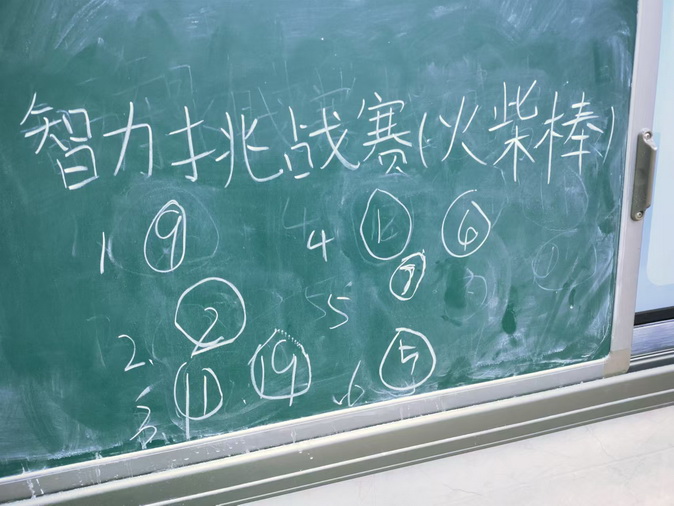 智力挑战赛(火柴棒)
1 9
4 6
5 7
2. 2
3. 11 19
6 5